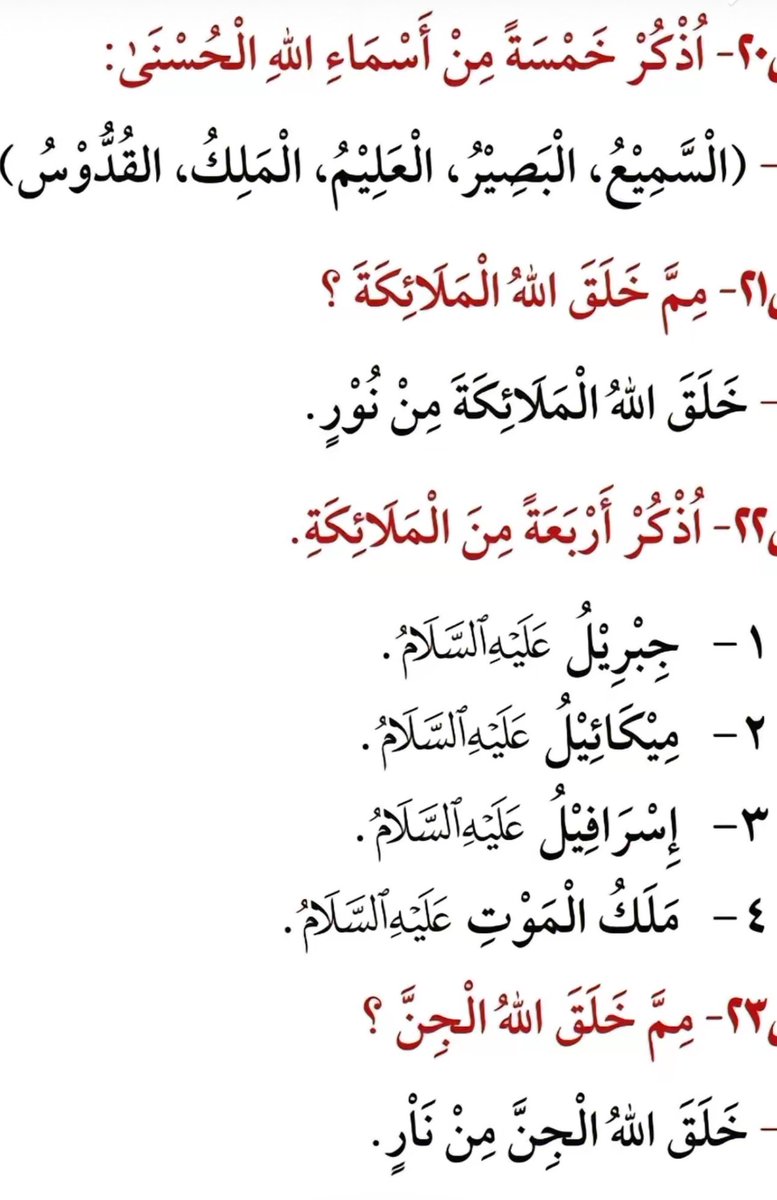 س٢٠- اُذْكُرْ خَمْسَةً مِنْ أَسْمَاءِ اللهِ الْحُسْنَىٰ:
- (الْسَّمِيْعُ، الْبَصِيْرُ، الْعَلِيْمُ، الْمَلِكُ، القُدُّوْسُ)
س٢١- مِمَّ خَلَقَ اللهُ الْمَلَائِكَةَ ؟
- خَلَقَ اللهُ الْمَلَائِكَةَ مِنْ نُوْرٍ.
س٢٢- اُذْكُرْ أَرْبَعَةً مِنَ الْمَلَائِكَةِ.
١- جِبْرِيْلُ عَلَيْهِ ٱلسَّلَامُ.
٢- مِيْكَائِيْلُ عَلَيْهِ ٱلسَّلَامُ.
٣- إِسْرَافِيْلُ عَلَيْهِ ٱلسَّلَامُ.
٤- مَلَكُ الْمَوْتِ عَلَيْهِ ٱلسَّلَامُ.
س٢٣- مِمَّ خَلَقَ اللهُ الْجِنَّ ؟
- خَلَقَ اللهُ الْجِنَّ مِنْ نَاْرٍ.